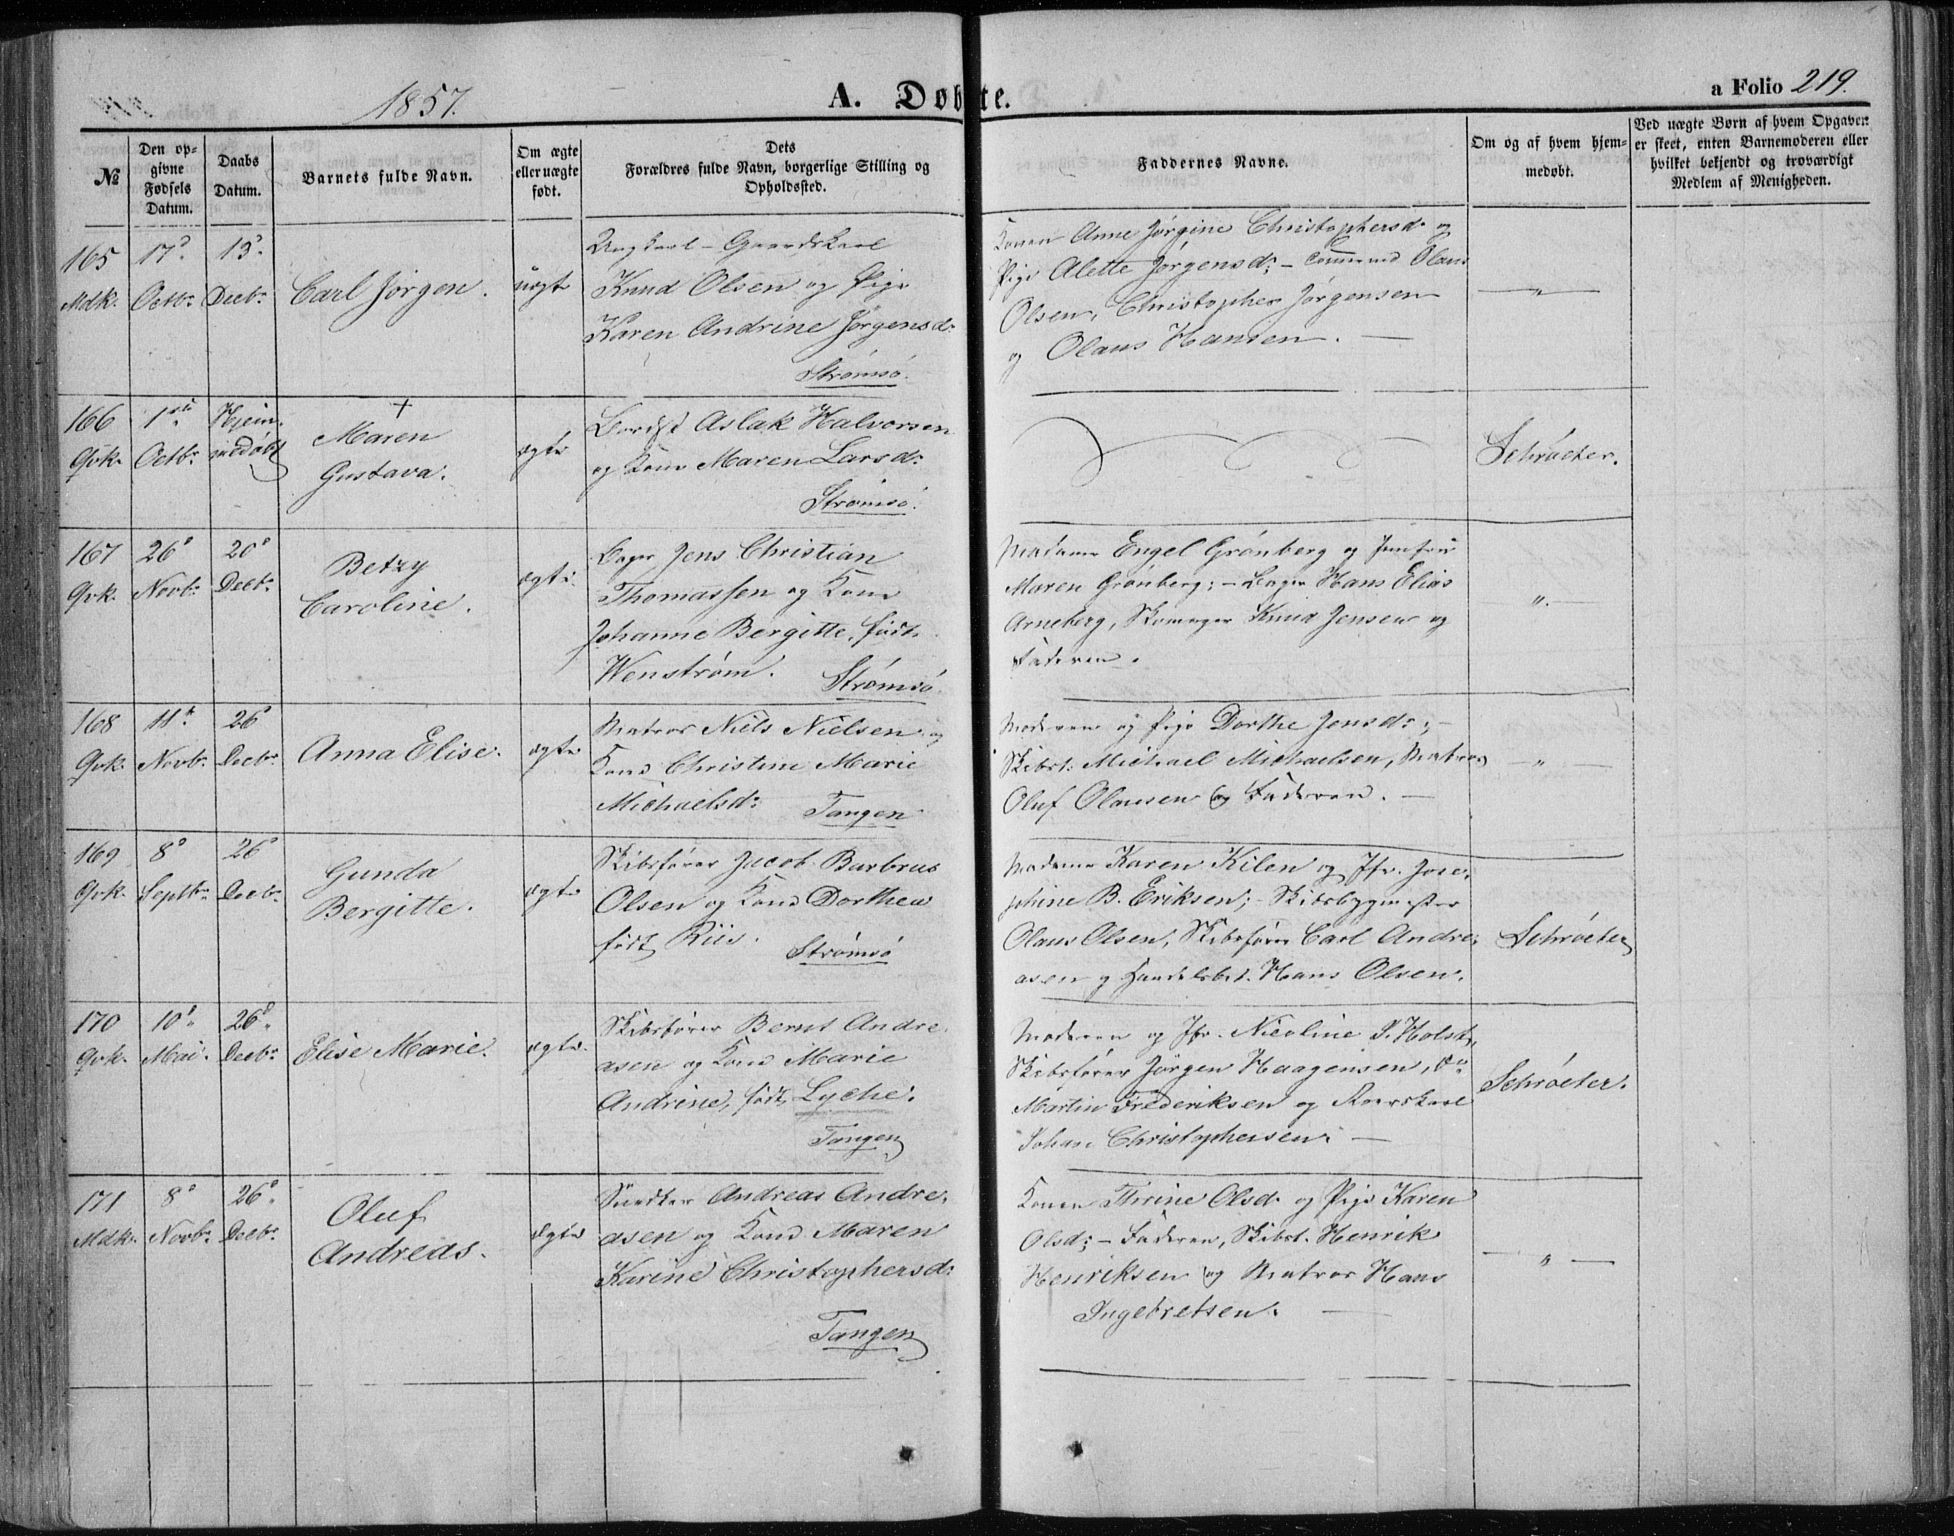 1857.
A. Døbte.
a Folio 219.
№
Den op-
givne
Fødsels
Datum.
Daabs
Datum.
Barnets fulde Navn.
Om ægte
eller uægte
født.
Dets
Forældres fulde Navn, borgerlige Stilling og
Opholdssted.
Faddernes Navne.
Om og af hvem hjem-
medøbt.
Ved uægte Børn af hvem Opgaven
er skeet, enten Barnemoderen eller
hvilket bekjendt og troværdigt
Medlem af Menigheden.
165
Mdk.
17de
Octbr
13de
Decbr
Carl Jørgen.
uægte
Ungkarl - Gaardskarl
Knud Olsen og Pige
Karen Andrine Jørgensd:
Strømsö.
Konen Anne Jørgine Christophersd. og
Pige Alette Jørgensd: - Olaus
Olsen, Christopher Jørgensen
og Olaus Hansen. -
"
166
Qvk.
1ste
Octbr
Hjem-
medøbt
+
Maren
Gustava.
ægte
Aslak Halvorsen
og Kone Maren Larsd:
Strømsö.
Schröeter.
167
Qvk.
26de
Novbr
20de
Decbr
Betzy
Caroline.
ægte.
Jens Christian
Thomassen og Kone
Johanne Bergitte, født
Wenstrøm. Strømsö.
Madame Engel Grönberg og Jomfru
Maren Grönberg; - Hans Elias
Arneberg, Skomager Knud Jensen og
Faderen.
"
168
Qvk.
11te
Novbr
26de
Decbr
Anna Elise.
ægte
Matros Niels Nielsen og
Kone Christine Marie
Michaelsd: Tangen
Moderen og Pige Dorthe Jensd:; -
Skibst. Michael Michaelsen, Matros
Oluf Olausen og Faderen. -
"
169
Qvk.
8de
Septbr
26de
Decbr
Gunda
Bergitte.
ægte
Skibsfører Jacob Barbrus
Olsen og Kone Dorthea
født Riis. Strømsö
Madame Karen Kilen og Jfr. Jose-
phine B. Eriksen; - Skibsbygmester
Olaus Olsen, Skibsfører Carl Andre-
asen og Handelsbet. Hans Olsen.
Schröeter
170
Qvk.
10de
Mai.
26de
Decbr
Elise Marie.
ægte.
Skibsfører Bernt Andre-
asen og Kone Marie
Andrine, født Lyche.
Tangen
Moderen og Jfr. Nicoline S. Holst,
Skibsfører Jørgen Haagensen, do
Martin Frederiksen og
Johan Christophersen. -
Schröeter.
171
Mdk.
8de
Novbr
26de
Decbr
Oluf
Andreas.
ægte
Snedker Andreas Andre-
asen og Kone Maren
Karine Christophersd:
Tangen
Konen Thrine Olsd. og Pige Karen
Olsd; - Faderen, Skibst. Henrik
Henriksen og Matros Hans
Ingebretsen. -
"